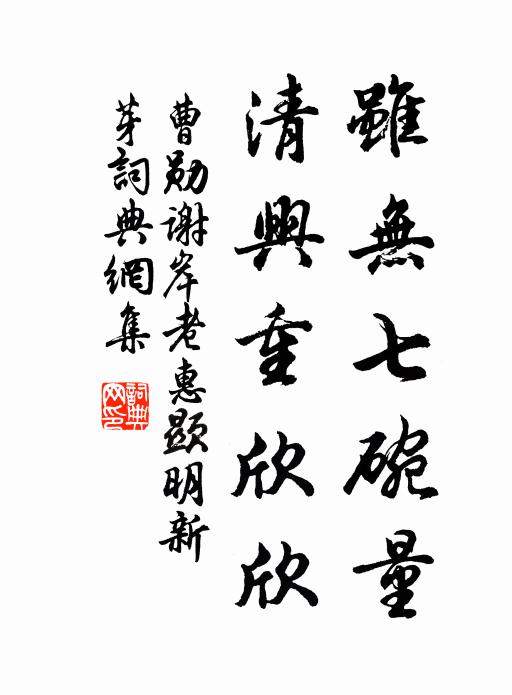 雖無七碗量
清興重欣欣
曹勛謝岸老惠顕明新
芽詞典網集
詞典网印